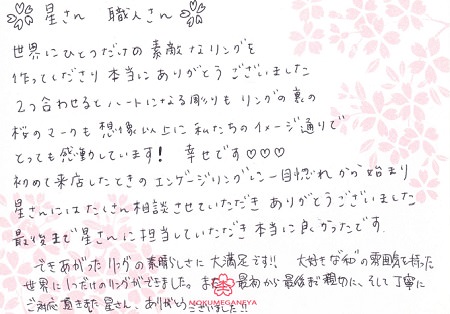 星さん 職人さん
世界にひとつだけの素敵なリングを
作ってくださり本当にありがとうございました
2つ合わせるとハートになる彫りもリングの裏の
桜のマークも想像以上に私たちのイメージ通りで
とっても感動しています! 幸せです♡♡♡
初めて来店したときのエンゲージリングに一目惚れから始まり
星さんにはたくさん相談させていただきありがとうございました
最後まで星さんに担当していただき本当に良かったです。
できあがったリングの素晴らしさに大満足です!! 大好きな"和"の雰囲気を持った
世界に1つだけのリングができました。また、最初から最後まで親切に、そして丁寧に
ご対応頂きました星さん、ありがとうございました!!
MOKUMEGANEYA